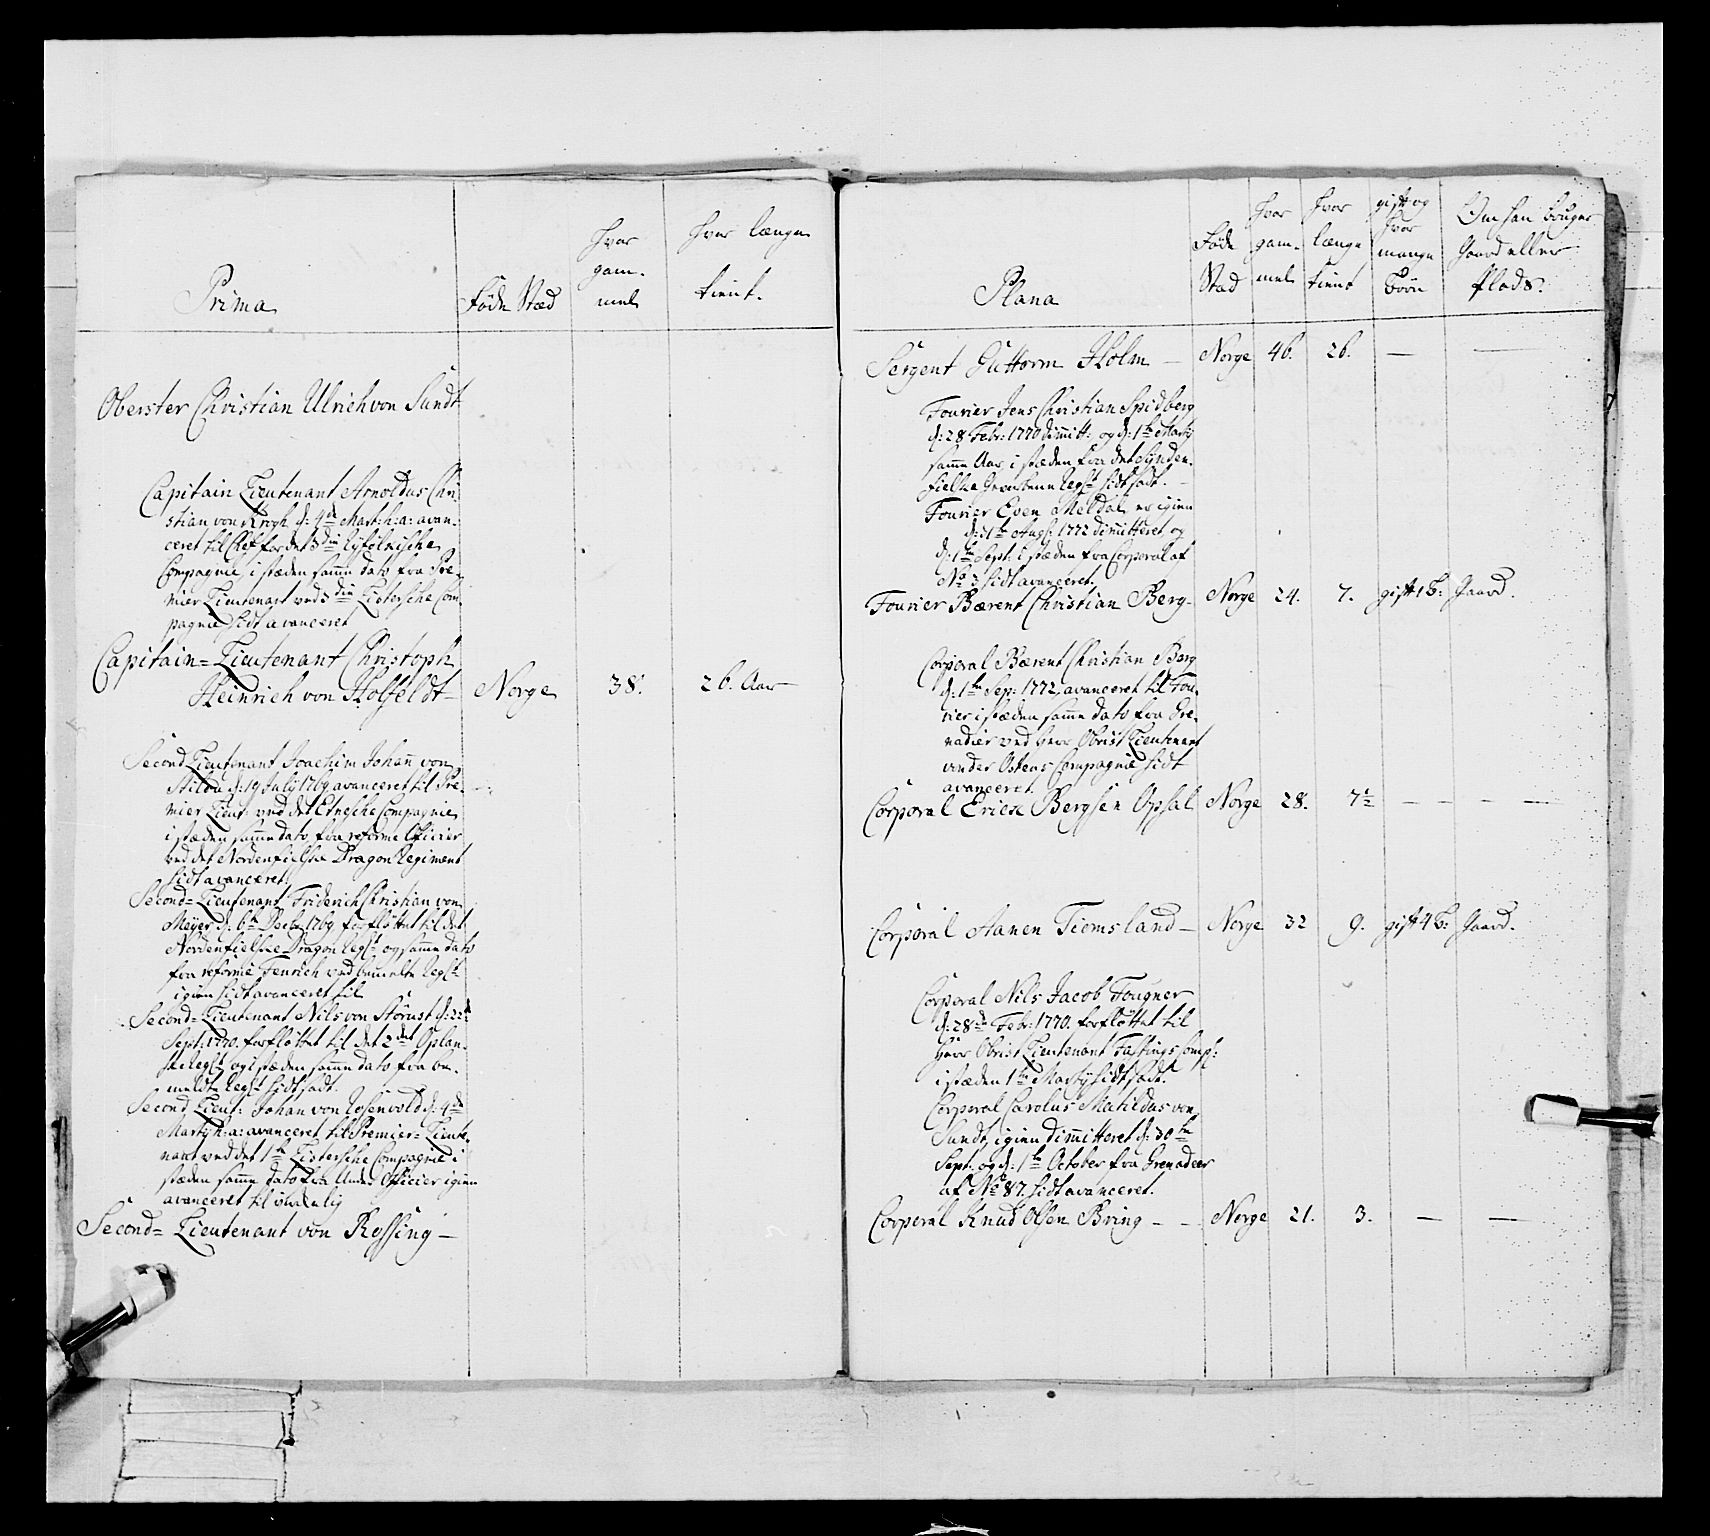 Prima
Føde Stæd
Hvor
gam-
mel
Hvor længe
tient.
Oberster Christian Ulrich von Sundt
Capitain Lieutenant Arnoldus Chri
stian von Krogh d: 4de Mart: h: a: avan-
ceret til Chef for det 3die
Compagnie i stæden samme dato fra Pre-
mier Lieutenant ved 3die Listerske Com-
pagnie hidt avanceret
Capitain= Lieutenant Christoph
Heinrich von Holfeldt — Norge 38. 26. Aar —
Second Lieutenant Joachim Johan von
d: 19 July 1769 avanceret til Pre-
mier Lieut: ved det Etnesche Compagnie
i stæden samme dato fra reforme Officier
ved det Nordenfielske Dragon Regiment
hidt avanceret.
Second= Lieutenant Friderich Christian von
Meyer d: 6te Decbr 1769 forfløttet til det
Nordenfielske Dragon Regt og samme dato
fra reforme Fenrich ved bemelte Regt
igien hidt avanceret til
Second= Lieutenant Nils von Storust d: 22de
Sept: 1770. forfløttet til det 2det Oplan-
ske Regt og i stæden samme dato fra be-
meldte Regt hidt sadt.
Second Lieut: Johan von Rosenvold d: 4de
Martÿ h: a: avanceret til Premier= Lieute-
nant ved det 1te Listerske Compagnie i
stæden samme dato fra Under Officier igien
avanceret til
Second= Lieutenant von Ressing —
Plana
Føde
Stad
Hvor
gam-
mel
Hvor
længe
tient
gift og
hvor
mange
Børn
Om han bruger
Gaard eller
Plads.
Sergent Guttorm Holm — Norge 46. 26. — —
Fourier Jens Christian Spidberg
d: 28 Febr: 1770 dimitt: og d: 1te Martÿ
samme Aar i stæden fra det Synden-
fielske Gevorbene Regt hidt sadt. —
Fourier Even Meldal er igien
d: 31te Aug: 1772 dimitteret og
d: 1te Sept: i stæden fra Corporal af
No 3 hidt avanceret.
Fourier Bærent Christian Berg — Norge 24. 7. gift 1 B: Gaard.
Corporal Bærent Christian Berg
d: 1te Sep: 1772, avanceret til Fou-
rier i stæden samme dato fra Gre-
nadier ved Herr Obrist Lieutenant
von der Ostens Compagnie hidt
avanceret.
Corporal Erich Bergsen Opsal Norge 28. 7½ — — — —
Corporal Aanen Tiomsland — Norge 32 9. gift 4 B: Gaard.
Corporal Nils Jacob Fougner
d: 28de Febr: 1770. forfløttet til
Herr Obrist Lieutenant Fastings Comp:
i stæden 1te Martÿ hidt sadt.
Corporal Carolus Matildas von
Sundt, igien dimitteret d: 30te
Sept: og d: 1te October fra Grenadeer
af No 87. hidt avanceret.
Corporal Knud Olsen Bring — — Norge 21. 3. — —